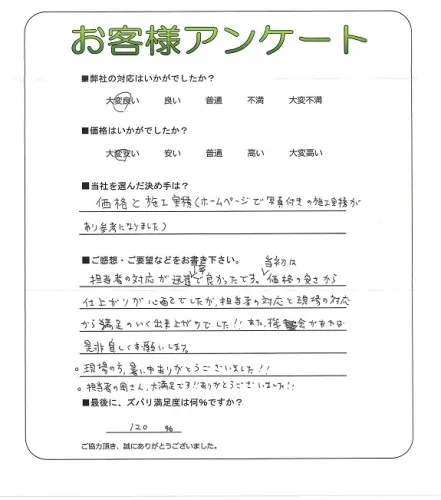 お客様アンケート
■弊社の対応はいかがでしたか？
大変良い 良い 普通 不満 大変不満
■価格はいかがでしたか？
大変安い 安い 普通 高い 大変高い
■当社を選んだ決め手は？
価格と施工実務(ホームページで写真付きの施工実務が
あり参考になりました)
■ご感想・ご要望などをお書き下さい。
担当者の対応が迅速で良かったです。当初は価格の安さから
仕上がりが心配でしたが、担当者の対応と現場の対応
から満足のいく出来上がりでした!!また、機会があれば
是非宜しくお願いします。
。現場の方、暑い中ありがとうございました!!
。担当者の岡さん、大満足です!!ありがとうございました!!
■最後に、ズバリ満足度は何％ですか？
120 %
ご協力頂き、誠にありがとうございました。